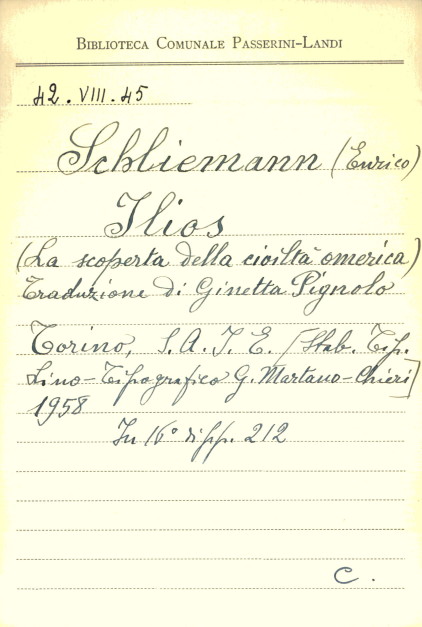 BIBLIOTECA COMUNALE PASSERINI-LANDI
42. VIII. 45
Schliemann (Enrico)
Ilios
(La scoperta della civiltà omerica)
Traduzione di Ginetta Pignolo
Torino, S. A. I. E. [Stab. Tip.
Lino-Tipografico G. Martano-Chieri]
1958
In 16° di pp. 212
C.